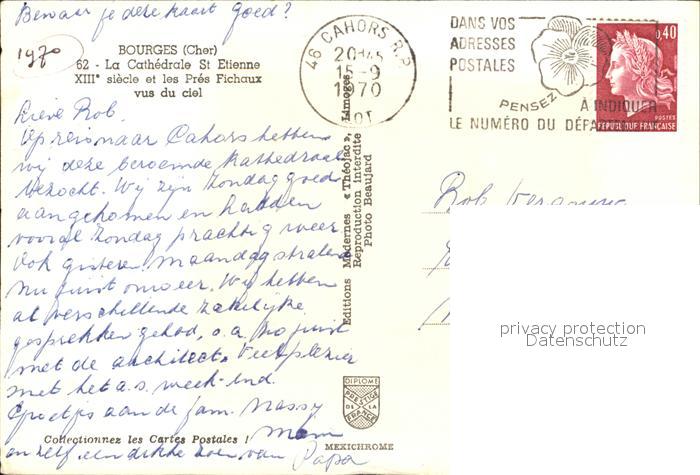 Bewaar je deze kaart goed?
1970
BOURGES (Cher)
62 - La Cathédrale St Etienne
XIIIe siècle et les Prés Fichaux
vus du ciel
Lieve Rob.
Op reis naar Cahors hebben
wij deze beroemde kathedraal
bezocht. Wij zijn Zondag goed
aangekomen en hadden
vooral Zondag prachtig weer
Ook gisteren maandag stralend
nu juist onweer. Wij hebben
al verschillende zakelijke
gesprekken gehad, o.a. zojuist
met de architect. Veel plezier
met het a.s. week-end.
Groetjes aan de fam. Massy.
Collectionnez les Cartes Postales !
Mam
en zelf een dikke zoen van Papa
Editions Modernes « Théojac », Limoges
Reproduction interdite
Photo Beaujard
DIPLOME
PRESTIGE
DE LA
FRANCE
MEXICHROME
46 CAHORS R.P.
20H45
15-9
1970
LOT
DANS VOS
ADRESSES
POSTALES
PENSEZ
À INDIQUER
LE NUMÉRO DU
0,40
POSTES
REPUBLIQUE FRANÇAISE
Rob
privacy protection
Datenschutz